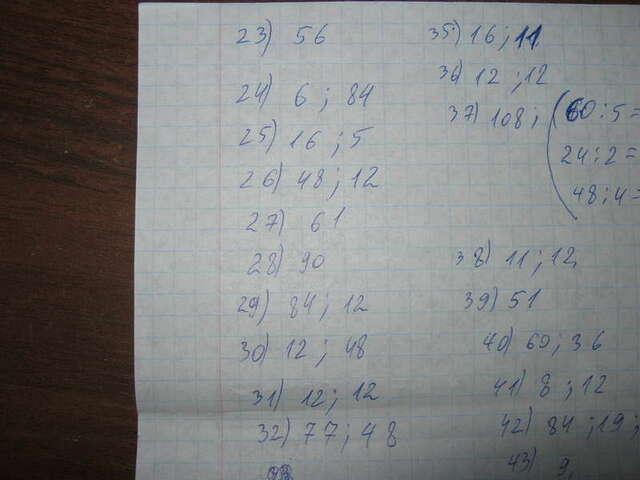 23) 56
24) 6 ; 84
25) 16 ; 5
26) 48 ; 12
27) 61
28) 90
29) 84 ; 12
30) 12 ; 48
31) 12 ; 12
32) 77 ; 48
35) 16 ; 11
36) 12 ; 12
37) 108 ; (60 : 5 =
24 : 2 =
48 : 4 =
38) 11 ; 12
39) 51
40) 60 ; 36
41) 8 ; 12
42) 84 ; 19 ;
43) 9